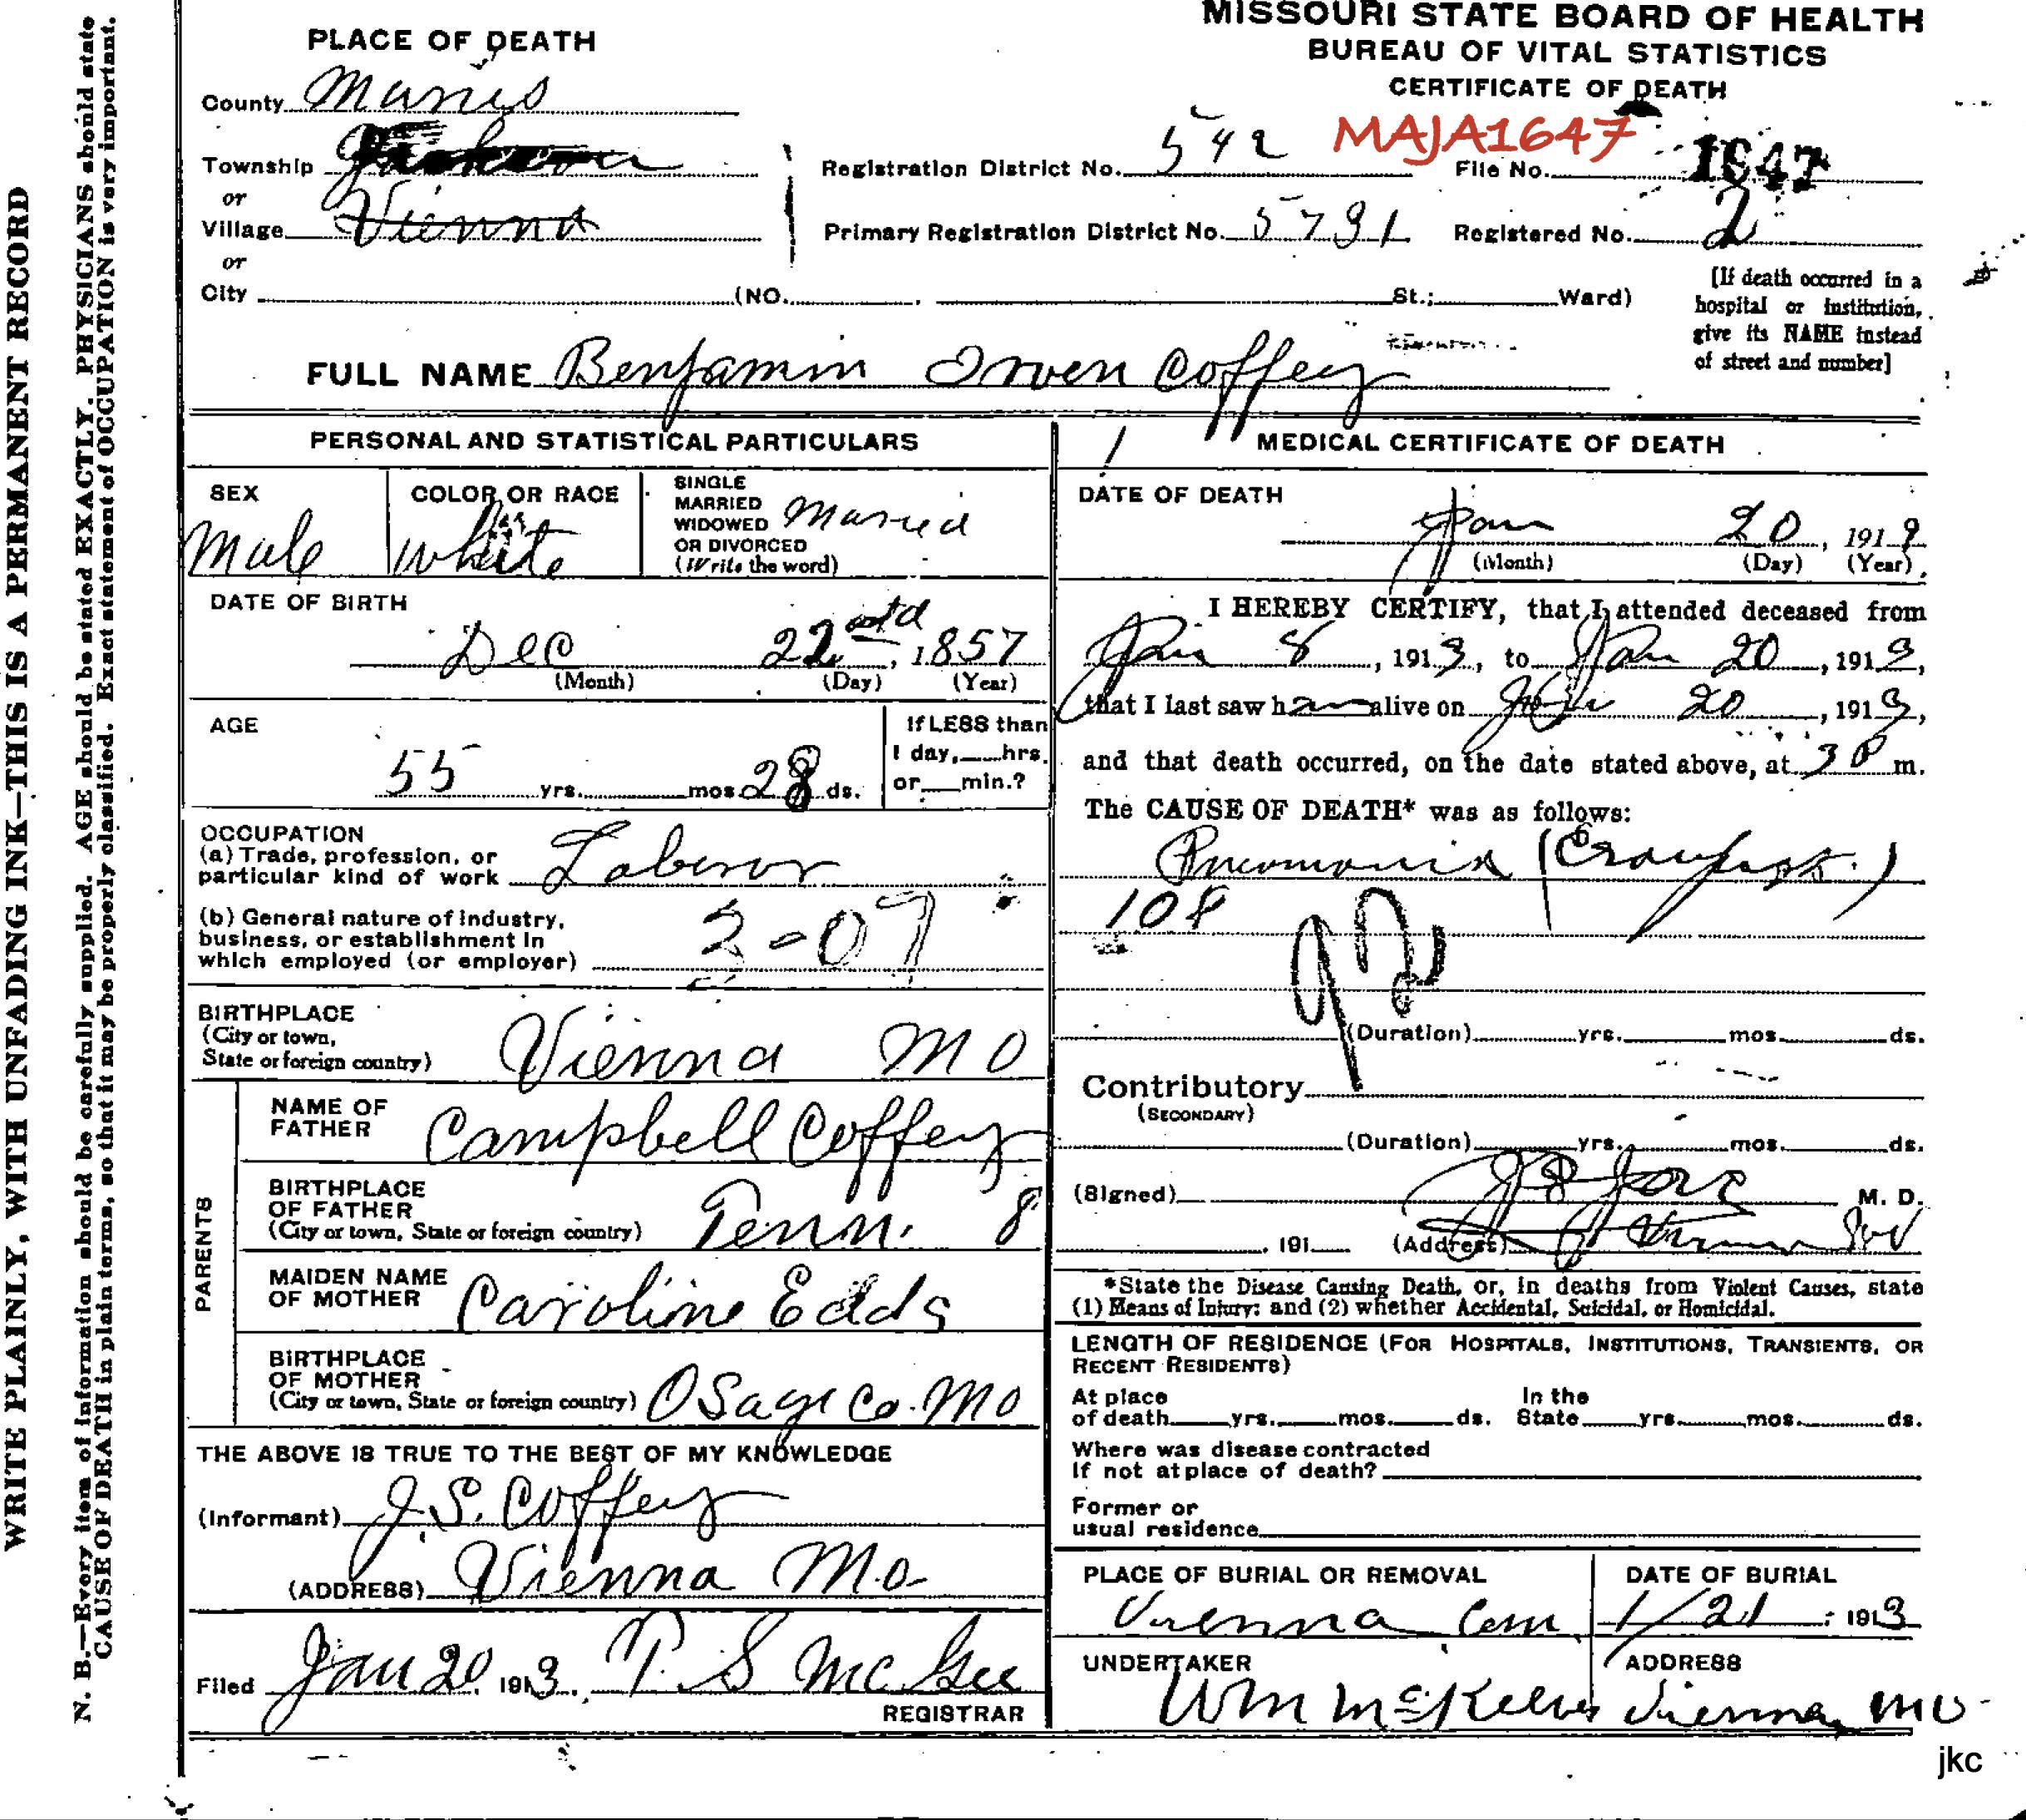 WRITE PLAINLY, WITH UNFADING INK—THIS IS A PERMANENT RECORD
N. B.—Every item of information should be carefully supplied. AGE should be stated EXACTLY. PHYSICIANS should state
CAUSE OF DEATH in plain terms, so that it may be properly classified. Exact statement of OCCUPATION is very important.
MISSOURI STATE BOARD OF HEALTH
BUREAU OF VITAL STATISTICS
CERTIFICATE OF DEATH
MAJA1647
PLACE OF DEATH
County Maries
Township
or
Village Vienna
or
City (NO. St.; Ward)
Registration District No. 542 File No. 1647
Primary Registration District No. 5791 Registered No. 2
[If death occurred in a
hospital or institution,
give its NAME instead
of street and number]
FULL NAME Benjamin Owen Coffey
PERSONAL AND STATISTICAL PARTICULARS
SEX
Male
COLOR OR RACE
White
SINGLE
MARRIED
WIDOWED
OR DIVORCED
(Write the word)
Married
DATE OF BIRTH
Dec 22, 1857
(Month) (Day) (Year)
AGE
55 yrs. mos. 28 ds.
If LESS than
1 day, hrs.
or min.?
OCCUPATION
(a) Trade, profession, or
particular kind of work Laboror
(b) General nature of industry,
business, or establishment in
which employed (or employer)
2-07
BIRTHPLACE
(City or town,
State or foreign country) Vienna MO
PARENTS
NAME OF
FATHER Campbell Coffey
BIRTHPLACE
OF FATHER
(City or town, State or foreign country) Tenn. 8
MAIDEN NAME
OF MOTHER Caroline Edds
BIRTHPLACE
OF MOTHER
(City or town, State or foreign country) Osage Co. MO
THE ABOVE IS TRUE TO THE BEST OF MY KNOWLEDGE
(Informant) J.S. Coffey
(ADDRESS) Vienna Mo
Filed Jan 20 1913. T. S McGee
REGISTRAR
MEDICAL CERTIFICATE OF DEATH
DATE OF DEATH
Jan 20, 191
(Month) (Day) (Year)
I HEREBY CERTIFY, that I attended deceased from
Jan 8, 1913, to Jan 20, 1913,
that I last saw h alive on Jan 20, 1913,
and that death occurred, on the date stated above, at 3 P m.
The CAUSE OF DEATH* was as follows:
Pneumonia
108
92
(Duration) yrs. mos. ds.
Contributory
(SECONDARY)
(Duration) yrs. mos. ds.
(Signed) M. D.
, 191 (Address)
*State the Disease Causing Death, or, in deaths from Violent Causes, state
(1) Means of Injury; and (2) whether Accidental, Suicidal, or Homicidal.
LENGTH OF RESIDENCE (FOR HOSPITALS, INSTITUTIONS, TRANSIENTS, OR
RECENT RESIDENTS)
At place of death yrs. mos. ds. In the State yrs. mos. ds.
Where was disease contracted
If not at place of death?
Former or
usual residence
PLACE OF BURIAL OR REMOVAL
Vienna Cem
DATE OF BURIAL
1/21 1913
UNDERTAKER
Wm McKeever
ADDRESS
Vienna, Mo
jkc